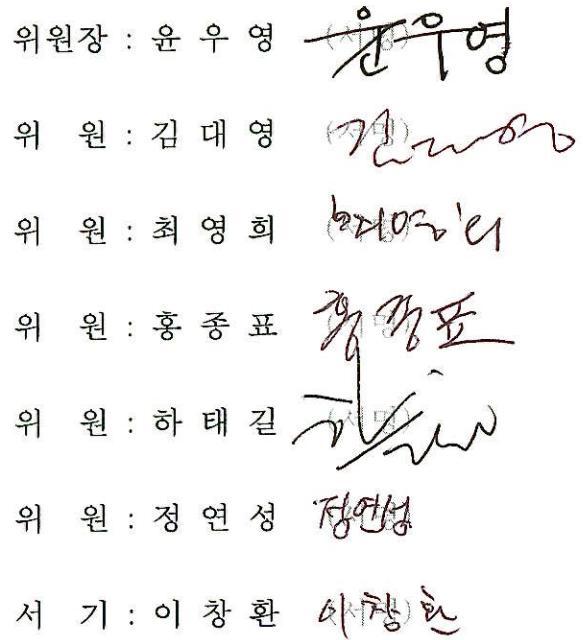 위원장 : 윤 우 영 (서명) 윤우영
위 원 : 김 대 영 (서명)
위 원 : 최 영 희 (서명) 최영희
위 원 : 홍 종 표 (서명) 홍종표
위 원 : 하 태 길 (서명)
위 원 : 정 연 성 (서명) 정연성
서 기 : 이 창 환 (서명) 이창환